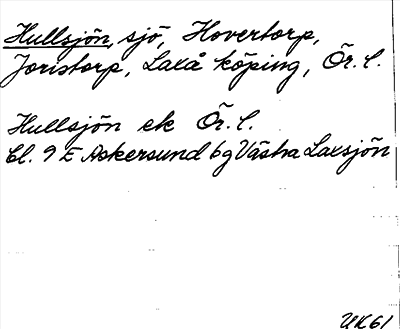 Hullsjön, sjö, Hovertorp,
Joristorp, Laxå köping, Ör. l.
Hullsjön ek Ör. l.
bl. 9 E Askersund 6g Västra Laxsjön
UK61